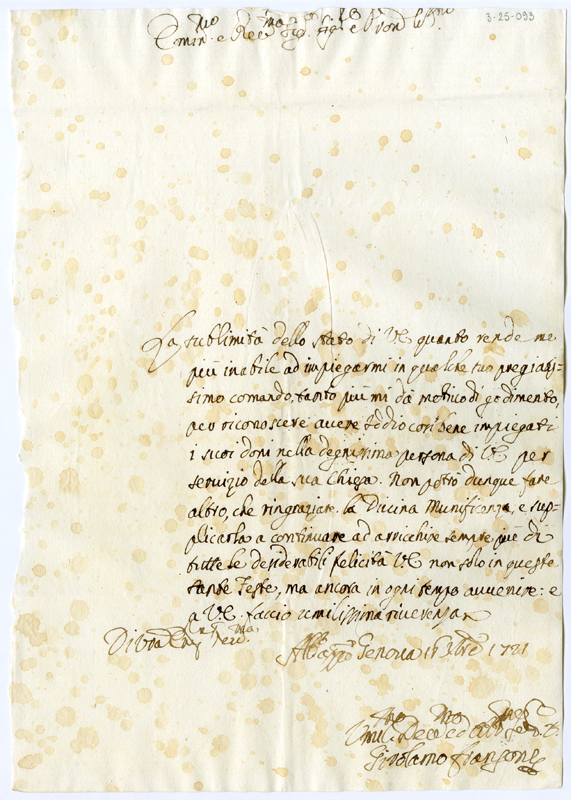 3-25-093
Emin.mo e Rev.mo Sig.
La sublimità dello stato di VE quanto rende me
più inabile ad impiegarmi in qualche suo pregiatis-
simo comando, tanto più mi dà motivo di godimento,
per riconoscere avere Iddio così bene impiegati
i suoi doni nella degnissima persona di VE per
servizio della sua Chiesa. Non potrò dunque fare
altro, che ringraziare la Divina Munificenza, e sup-
plicarla a continuare ad arricchire sempre più di
tutte le desiderabili felicità VE non solo in queste
sante Feste, ma ancora in ogni tempo avvenire: e
a VE faccio umilissima riverenza
Di Vra Em.za Rev.ma
Genova 1721
Girolamo